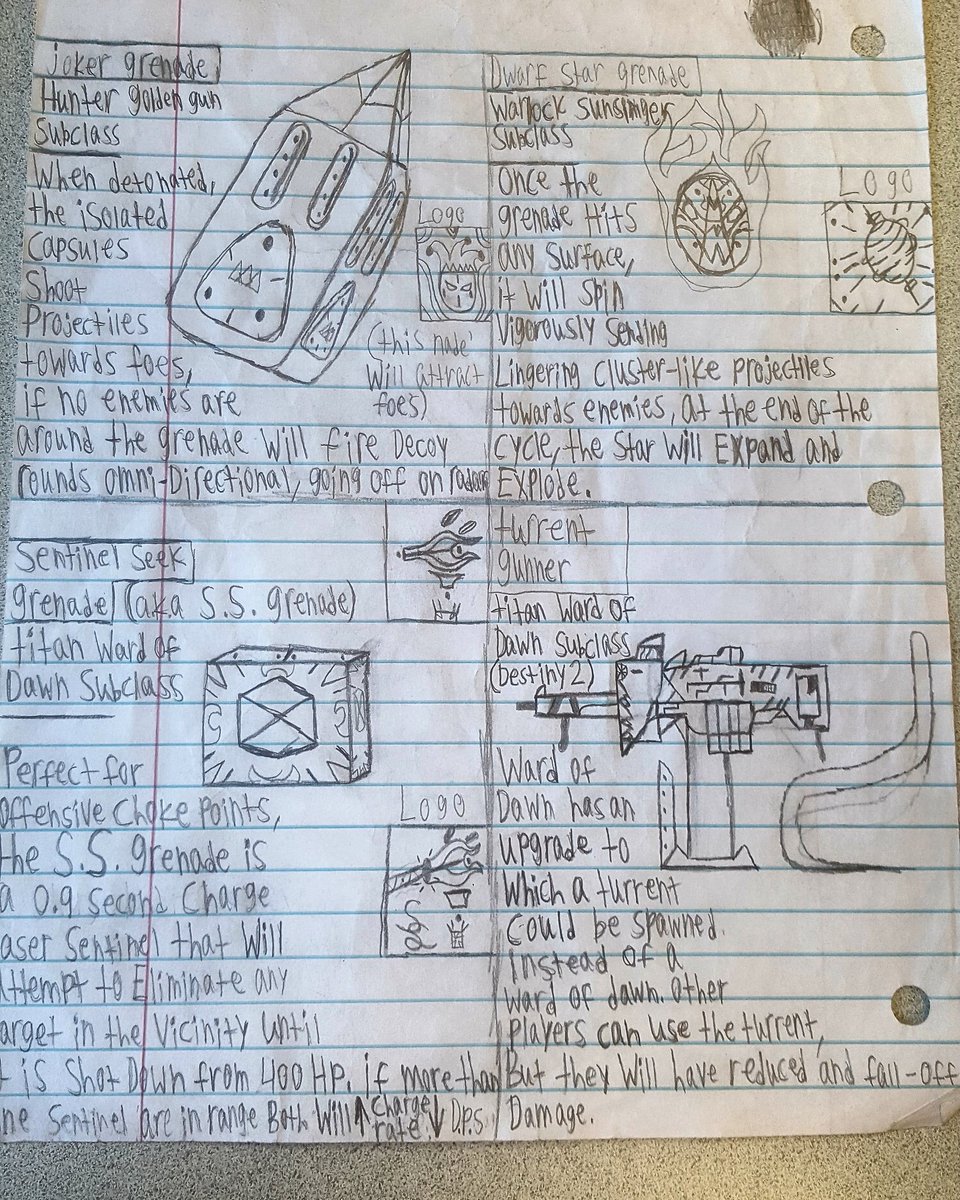 Joker grenade
Hunter golden gun
Subclass
When detonated,
the isolated
Capsules
Shoot
Projectiles
towards foes,
if no enemies are
around the grenade will fire Decoy
rounds omni-Directional, going off on radar
Logo
(this nade
will attract
foes)
Dwarf Star grenade
Warlock Sunsinger
Subclass
Once the
grenade Hits
any Surface,
it will Spin
Vigorously Sending
Lingering Cluster-like projectiles
towards enemies, at the end of the
Cycle, the Star will Expand and
Explode.
Logo
Sentinel Seek
grenade (aka S.S. grenade)
titan Ward of
Dawn Subclass
Perfect for
offensive Choke Points,
the S.S. grenade is
a 0.9 second Charge
laser Sentinel that will
attempt to Eliminate any
target in the Vicinity Until
is Shot Down from 400 HP. if more than
Sentinel are in range Both will ↑ Charge
rate. ↓ D.P.S
Logo
turrent
gunner
titan Ward of
Dawn Subclass
(Destiny 2)
Ward of
Dawn has an
upgrade to
which a turrent
could be spawned.
instead of a
ward of dawn. other
Players can use the turrent,
But they will have reduced and fall-off
Damage.